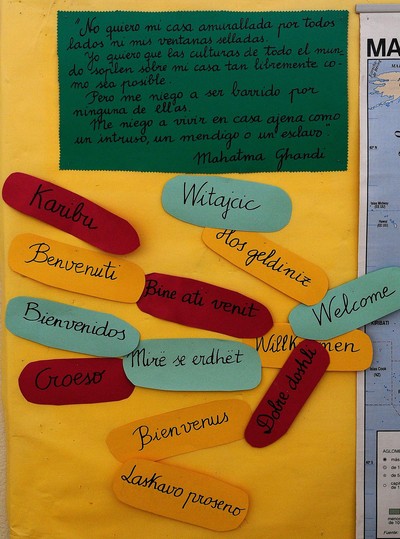 "No quiero mi casa amurallada por todos
lados ni mis ventanas selladas.
Yo quiero que las culturas de todo el mun-
do soplen sobre mi casa tan libremente co-
mo sea posible.
Pero me niego a ser barrido por
ninguna de ellas.
Me niego a vivir en casa ajena como
un intruso, un mendigo o un esclavo".
Mahatma Ghandi
MA
Karibu
Witajcic
Hos geldiniz
Benvenuti
Bine ati venit
Welcome
Bienvenidos
Mirë se erdhët
Willkommen
Croeso
Dobre doshli
Bienvenus
Laskavo proseno
KIRIBATI
AGLOME